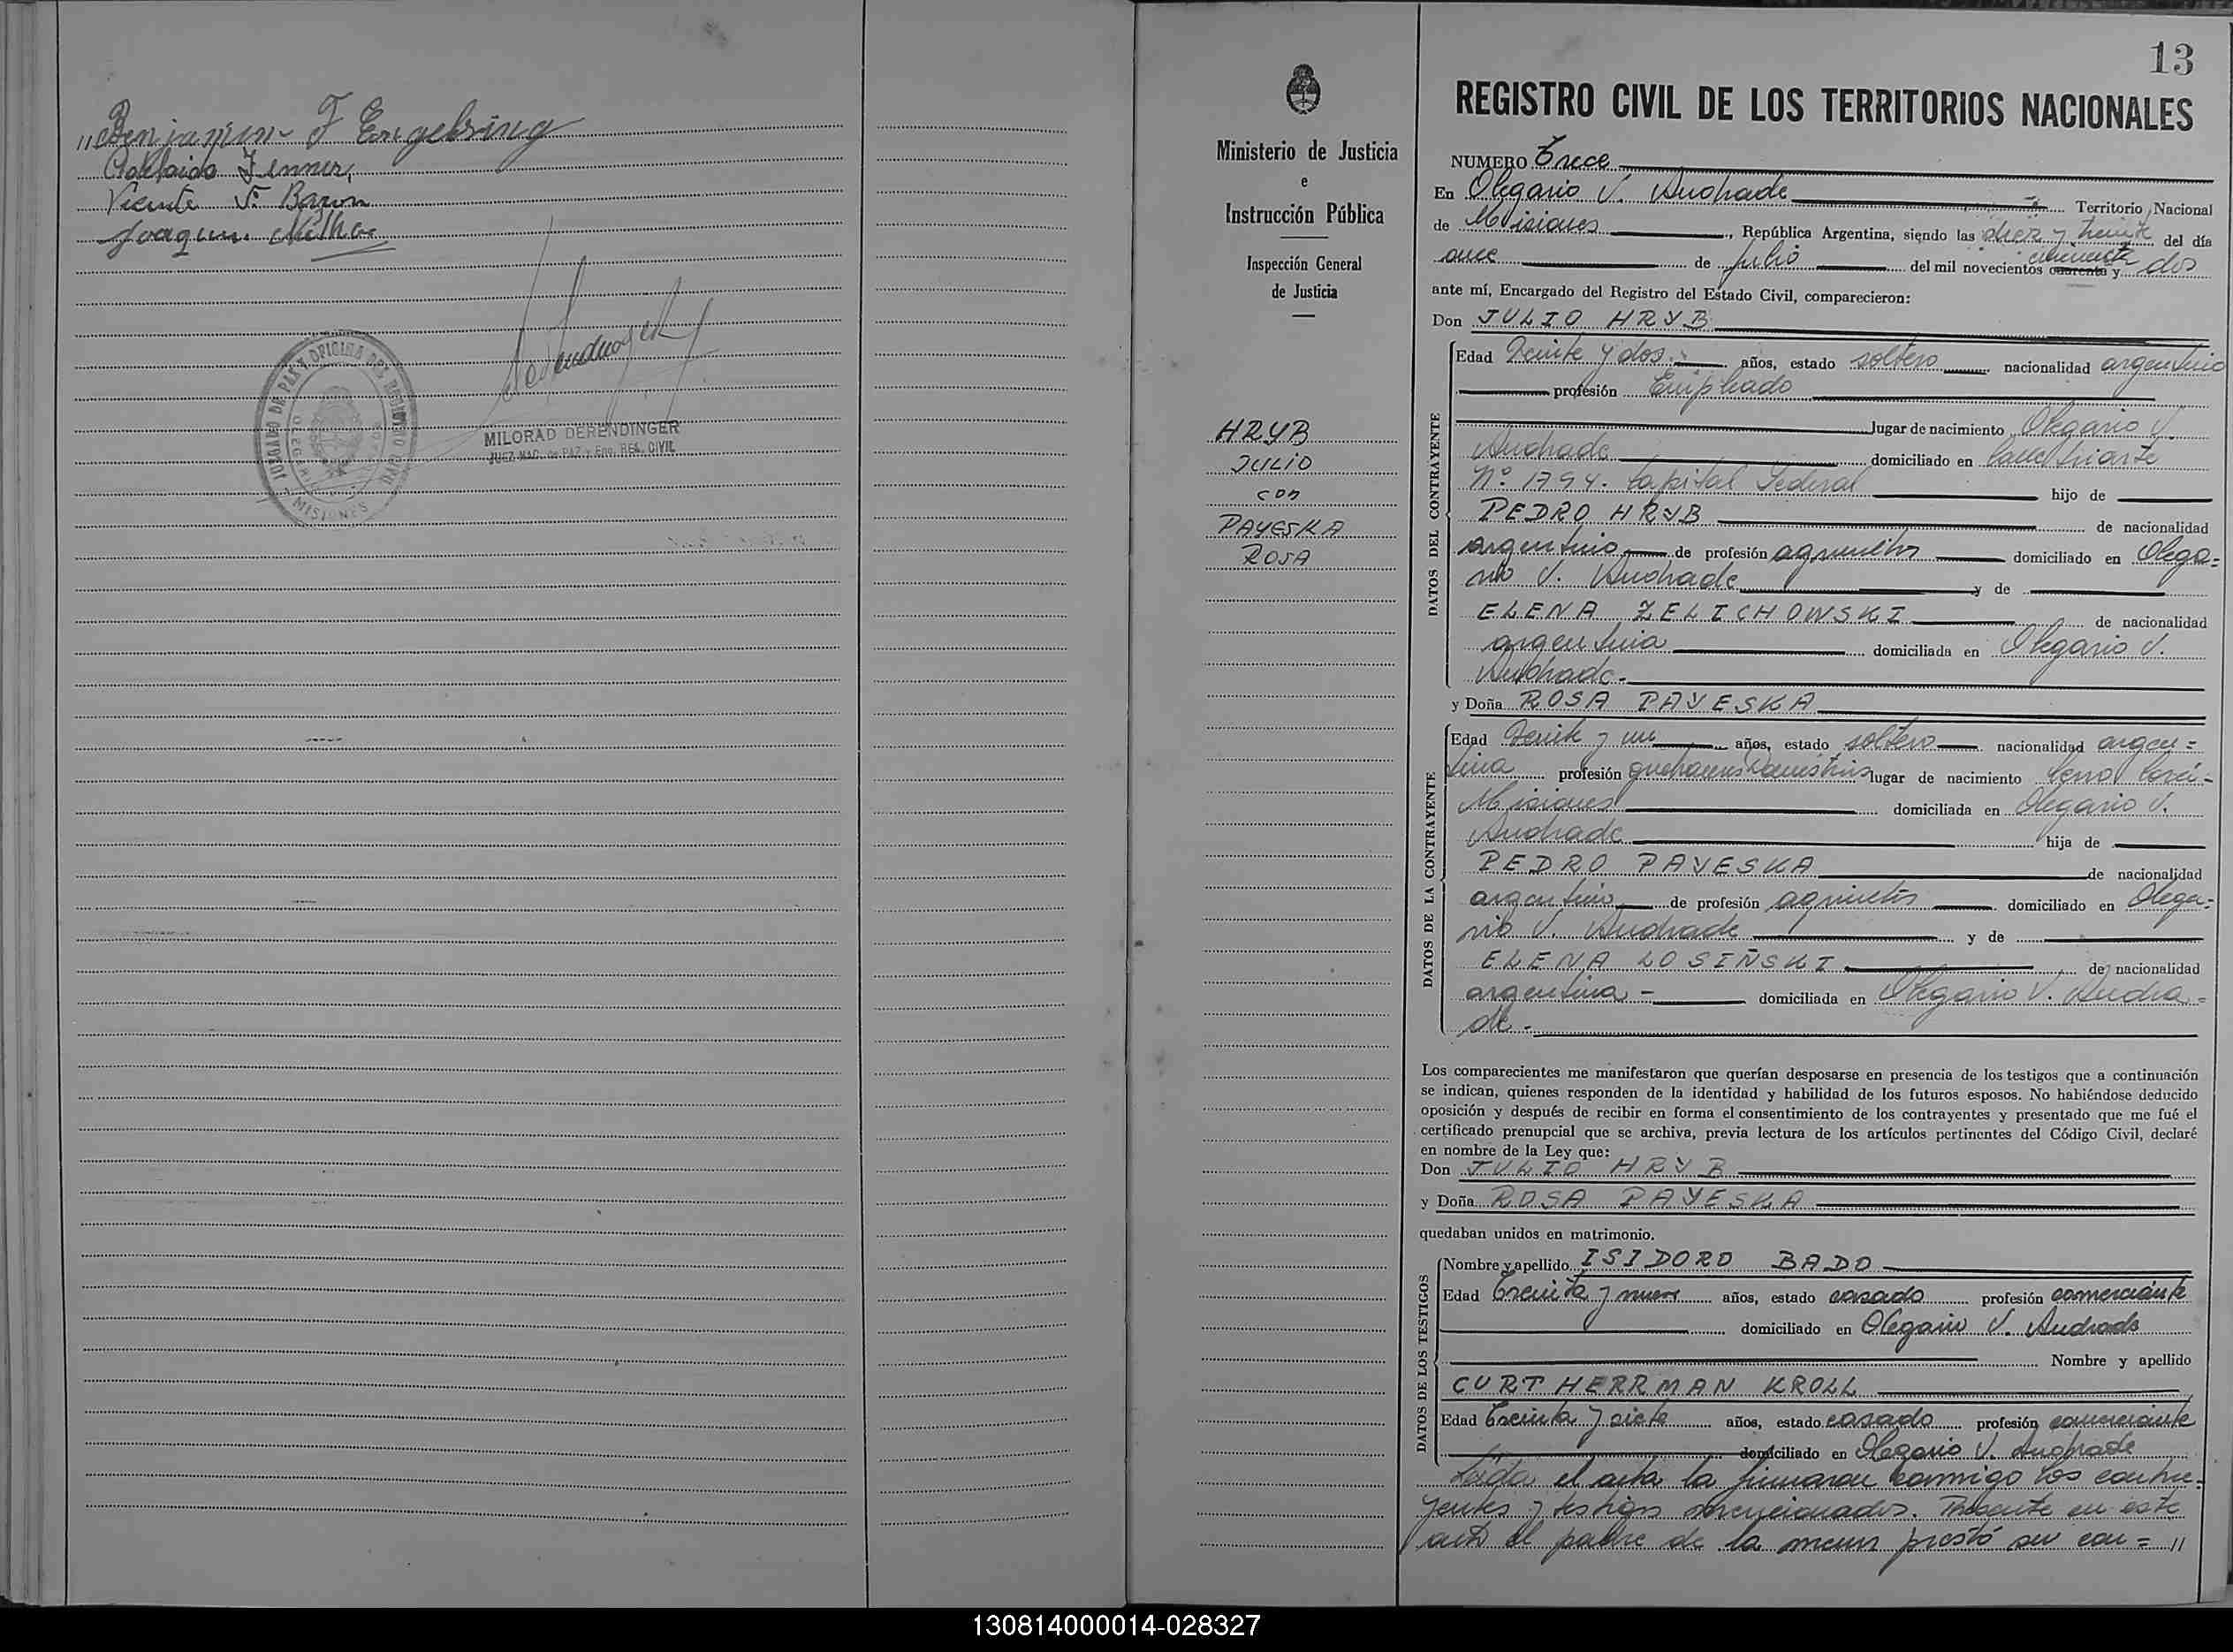 "Benjamin F Engelbring
Adelaida Jenner,
Vicente F. Baron
Joaquin
JUZGADO DE PAZ Y OFICINA DEL REGISTRO CIVIL
MISIONES
MILORAD DERENDINGER
JUEZ NAC. de PAZ y Enc. REG. CIVIL
Ministerio de Justicia
e
Instrucción Pública
Inspección General
de Justicia
HRYB
JULIO
con
PAYESKA
ROSA
13
REGISTRO CIVIL DE LOS TERRITORIOS NACIONALES
NUMERO Trece
En Olegario V. Andrade Territorio Nacional
de Misiones, República Argentina, siendo las diez y treinta del día
once de julio del mil novecientos cuarenta y cincuenta dos
ante mí, Encargado del Registro del Estado Civil, comparecieron:
Don JULIO HRYB
DATOS DEL CONTRAYENTE
Edad Veinte y dos años, estado soltero nacionalidad argentino
profesión Empleado
lugar de nacimiento Olegario V.
Andrade domiciliado en calle Iriarte
Nº 1794. Capital Federal hijo de
PEDRO HRYB de nacionalidad
argentino de profesión agricultor domiciliado en Olega=
rio V. Andrade y de
ELENA ZELICHOWSKI de nacionalidad
argentina domiciliada en Olegario V.
Andrade.-
y Doña ROSA PAYESKA
DATOS DE LA CONTRAYENTE
Edad Veinte y un años, estado soltera nacionalidad argen=
tina profesión quehaceres domésticos lugar de nacimiento Cerro Corá-
Misiones domiciliada en Olegario V.
Andrade hija de
PEDRO PAYESKA de nacionalidad
argentino de profesión agricultor domiciliado en Olega=
rio V. Andrade y de
ELENA LOSIÑSKI de nacionalidad
argentina - domiciliada en Olegario V. Andra=
de.-
Los comparecientes me manifestaron que querían desposarse en presencia de los testigos que a continuación
se indican, quienes responden de la identidad y habilidad de los futuros esposos. No habiéndose deducido
oposición y después de recibir en forma el consentimiento de los contrayentes y presentado que me fué el
certificado prenupcial que se archiva, previa lectura de los artículos pertinentes del Código Civil, declaré
en nombre de la Ley que:
Don JULIO HRYB
y Doña ROSA PAYESKA
quedaban unidos en matrimonio.
DATOS DE LOS TESTIGOS
Nombre y apellido ISIDORO BADO
Edad Treinta y nueve años, estado casado profesión comerciante
domiciliado en Olegario V. Andrade
Nombre y apellido
CURT HERRMAN KROLL
Edad Treinta y siete años, estado casado profesión comerciante
domiciliado en Olegario V. Andrade
Leída el acta la firmaron conmigo los contra=
yentes y testigos mencionados. Presente en este
acto el padre de la menor prestó su con= "
130814000014-028327